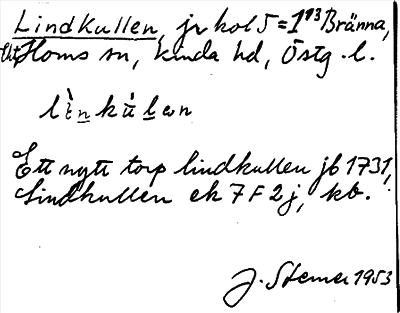 Lindkullen, jr kol 5 = 1⁷⁄₁₃ Bränna,
Horns sn, Kinda hd, Östg. l.
Ett nytt torp lindkullen jb 1731,
Lindkullen ek 7 F 2 j, kb.
J. Stemer 1953